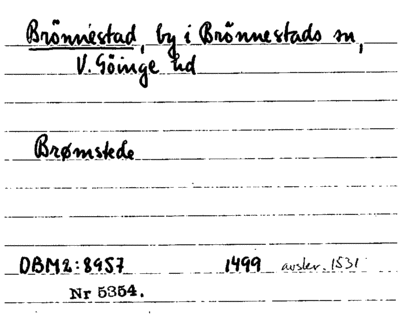 Brönnestad, by i Brönnestads sn,
V. Göinge hd
Brømstede
DBM2:8957 1499 avskr. 1531
Nr 5354.